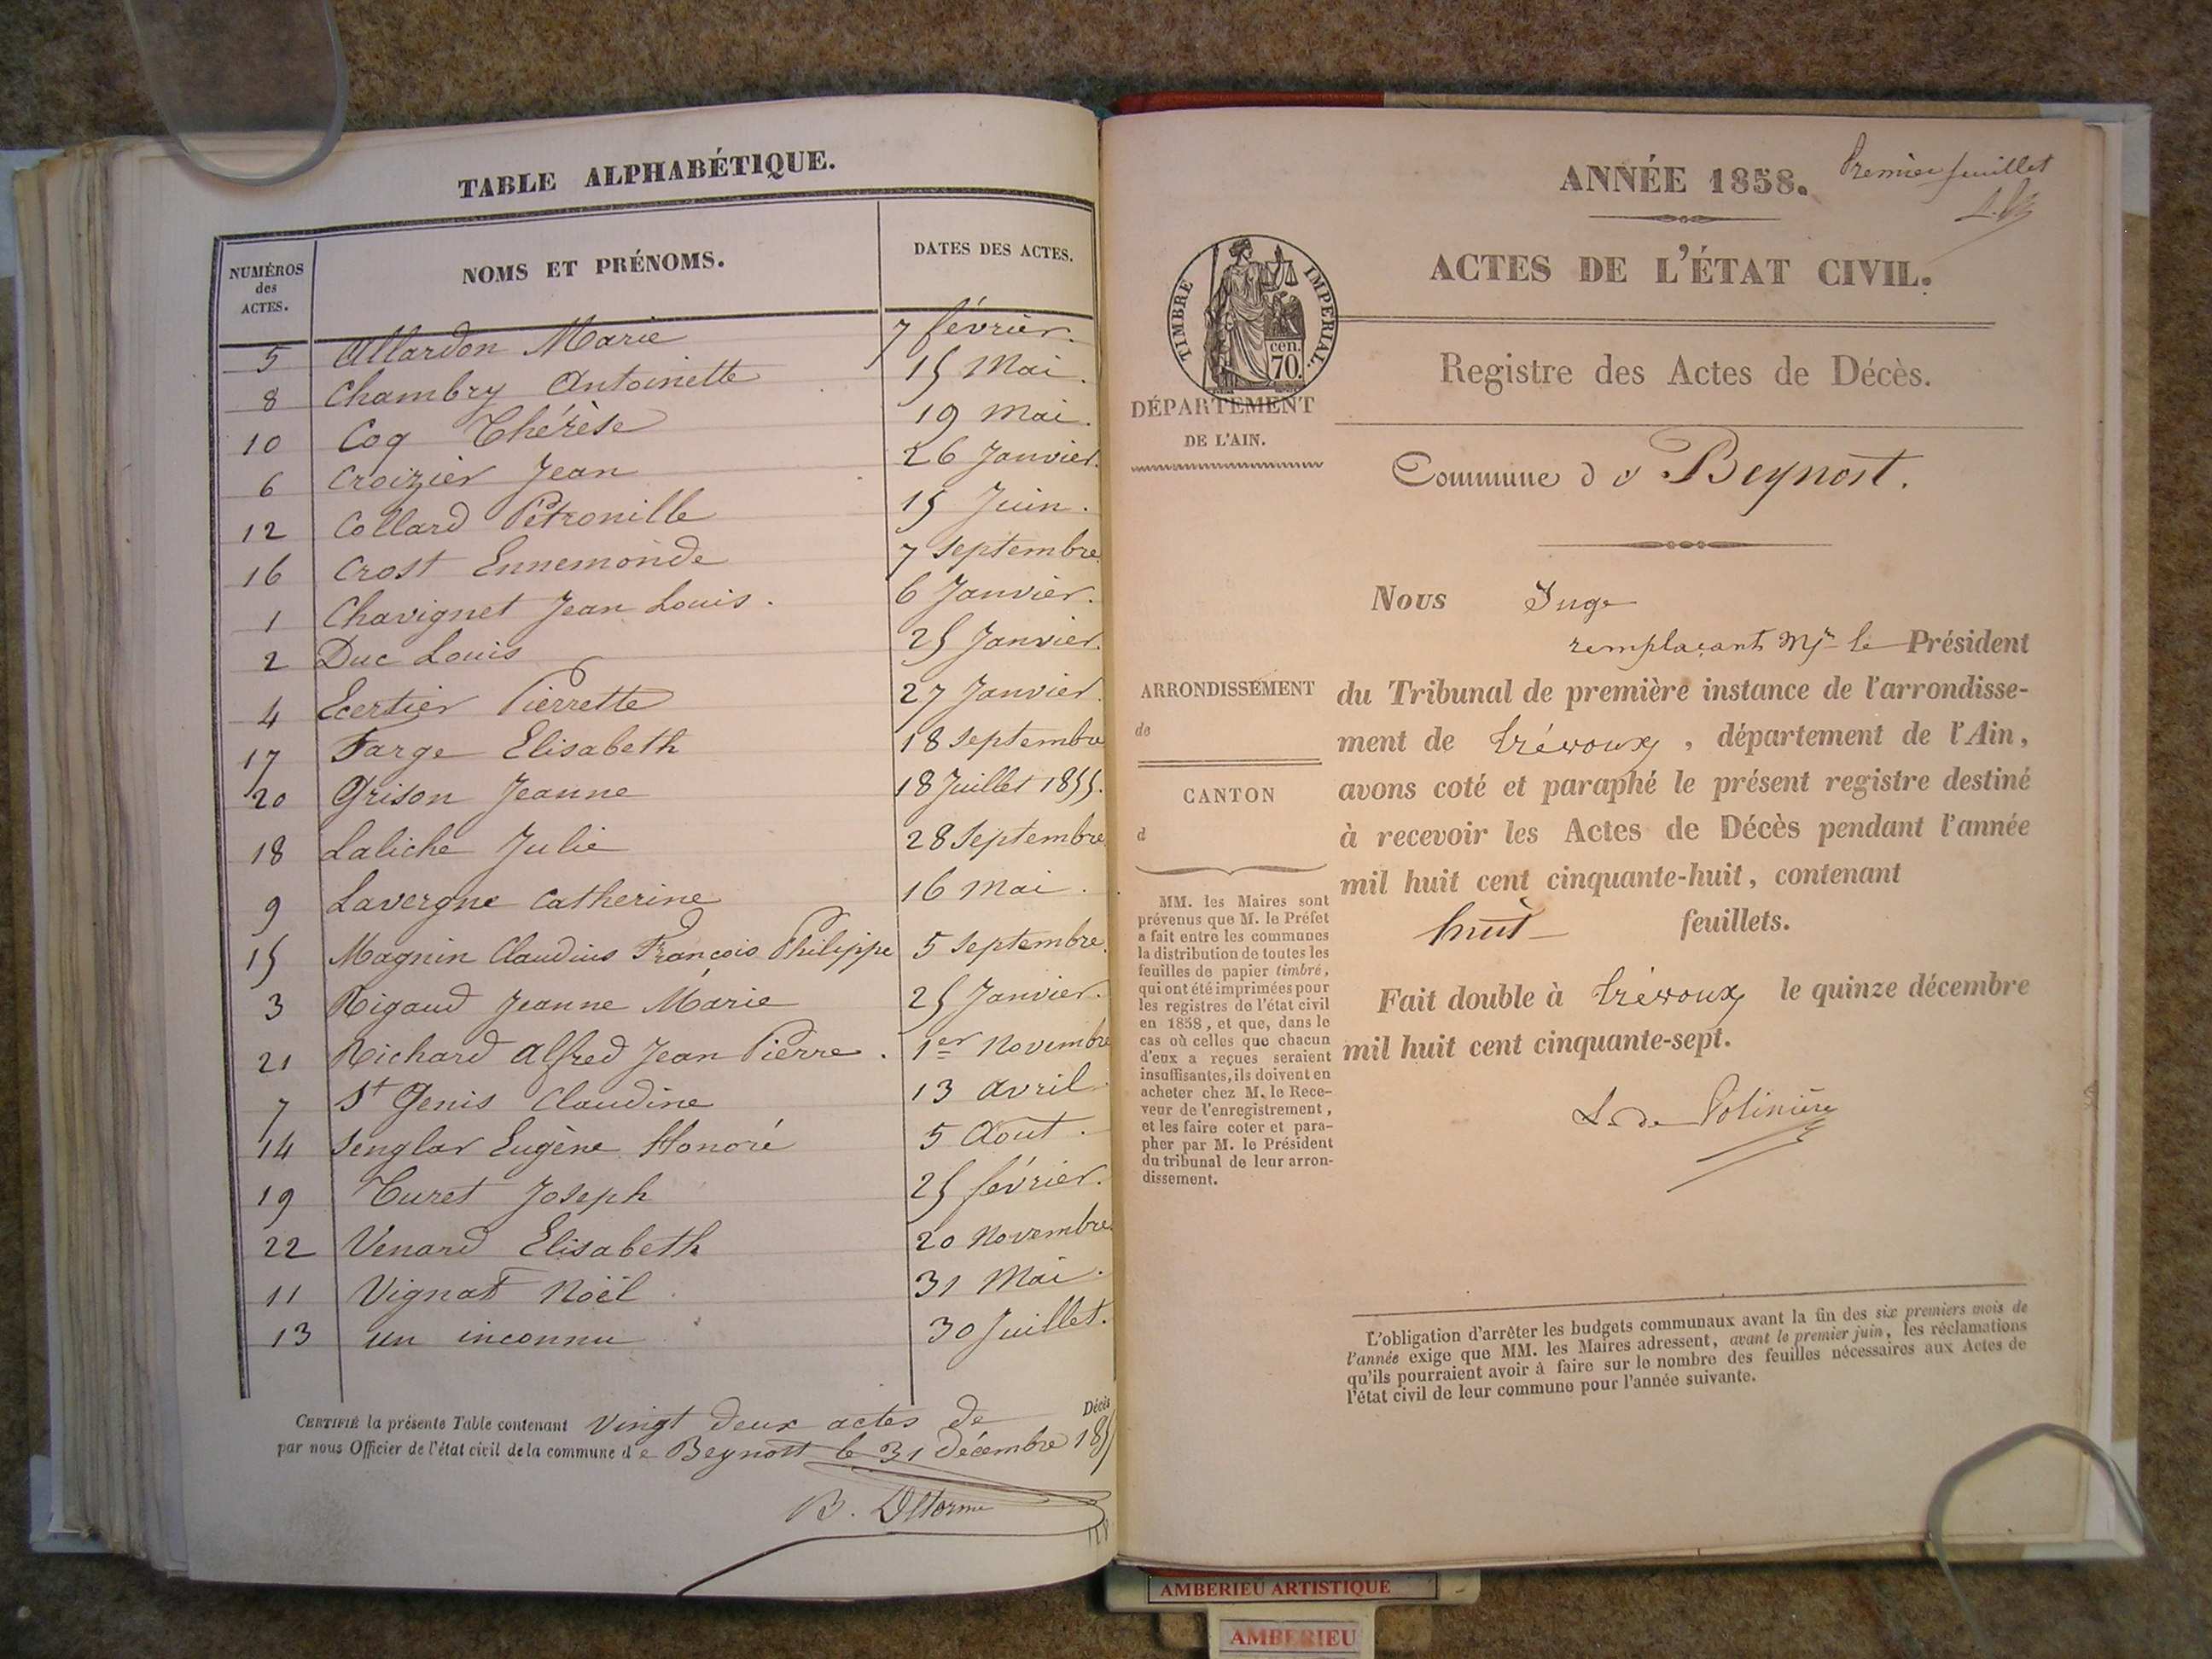 TABLE ALPHABÉTIQUE.
NUMÉROS des ACTES. NOMS ET PRÉNOMS. DATES DES ACTES.
5 Allardon Marie 7 février.
8 Chambry Antoinette 15 Mai.
10 Coq Thérèse 19 Mai.
6 Croizier Jean 26 Janvier.
12 Collard Pétronille 15 Juin.
16 Crost Ennemonde 7 Septembre
1 Chavignet Jean Louis. 6 Janvier.
2 Duc Louis 25 Janvier.
4 Ecertier Pierrette 27 Janvier.
17 Farge Elisabeth 18 Septembre
20 Grison Jeanne 18 Juillet 1855.
18 Laliche Julie 28 Septembre
9 Lavergne Catherine 16 Mai.
15 Magnin Claudius François Philippe 5 Septembre.
3 Rigaud Jeanne Marie 25 Janvier.
21 Richard Alfred Jean Pierre. 1er Novembre
7 St Genis Claudine 13 Avril
14 Senglar Eugène Honoré 5 Août.
19 Turet Joseph 25 février.
22 Venard Elisabeth 20 Novembre
11 Vignat Noël 31 Mai.
13 un inconnu 30 Juillet.
CERTIFIÉ la présente Table contenant Vingt deux actes de Décès
par nous Officier de l'état civil de la commune de Beynost le 31 Décembre
B. Delorme
ANNÉE 1858. Premier feuillet
ACTES DE L'ÉTAT CIVIL.
TIMBRE IMPÉRIAL.
cen.
70.
Registre des Actes de Décès.
DÉPARTEMENT
DE L'AIN.
Commune de Beynost.
Nous Juge
remplaçant Mr le Président
ARRONDISSEMENT
de
CANTON
d
du Tribunal de première instance de l'arrondisse-
ment de Trévoux, département de l'Ain,
avons coté et paraphé le présent registre destiné
à recevoir les Actes de Décès pendant l'année
mil huit cent cinquante-huit, contenant
huit feuillets.
Fait double à Trévoux le quinze décembre
mil huit cent cinquante-sept.
L. de Poliniere
MM. les Maires sont
prévenus que M. le Préfet
a fait entre les communes
la distribution de toutes les
feuilles de papier timbré,
qui ont été imprimées pour
les registres de l'état civil
en 1858, et que, dans le
cas où celles que chacun
d'eux a reçues seraient
insuffisantes, ils doivent en
acheter chez M. le Rece-
veur de l'enregistrement,
et les faire coter et para-
pher par M. le Président
du tribunal de leur arron-
dissement.
L'obligation d'arrêter les budgets communaux avant la fin des six premiers mois de
l'année exige que MM. les Maires adressent, avant le premier juin, les réclamations
qu'ils pourraient avoir à faire sur le nombre des feuilles nécessaires aux Actes de
l'état civil de leur commune pour l'année suivante.
AMBERIEU ARTISTIQUE
AMBERIEU